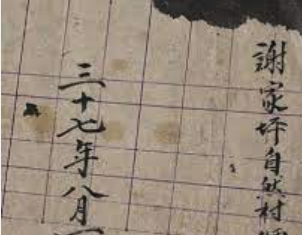 謝家坪自然村
三十七年八月